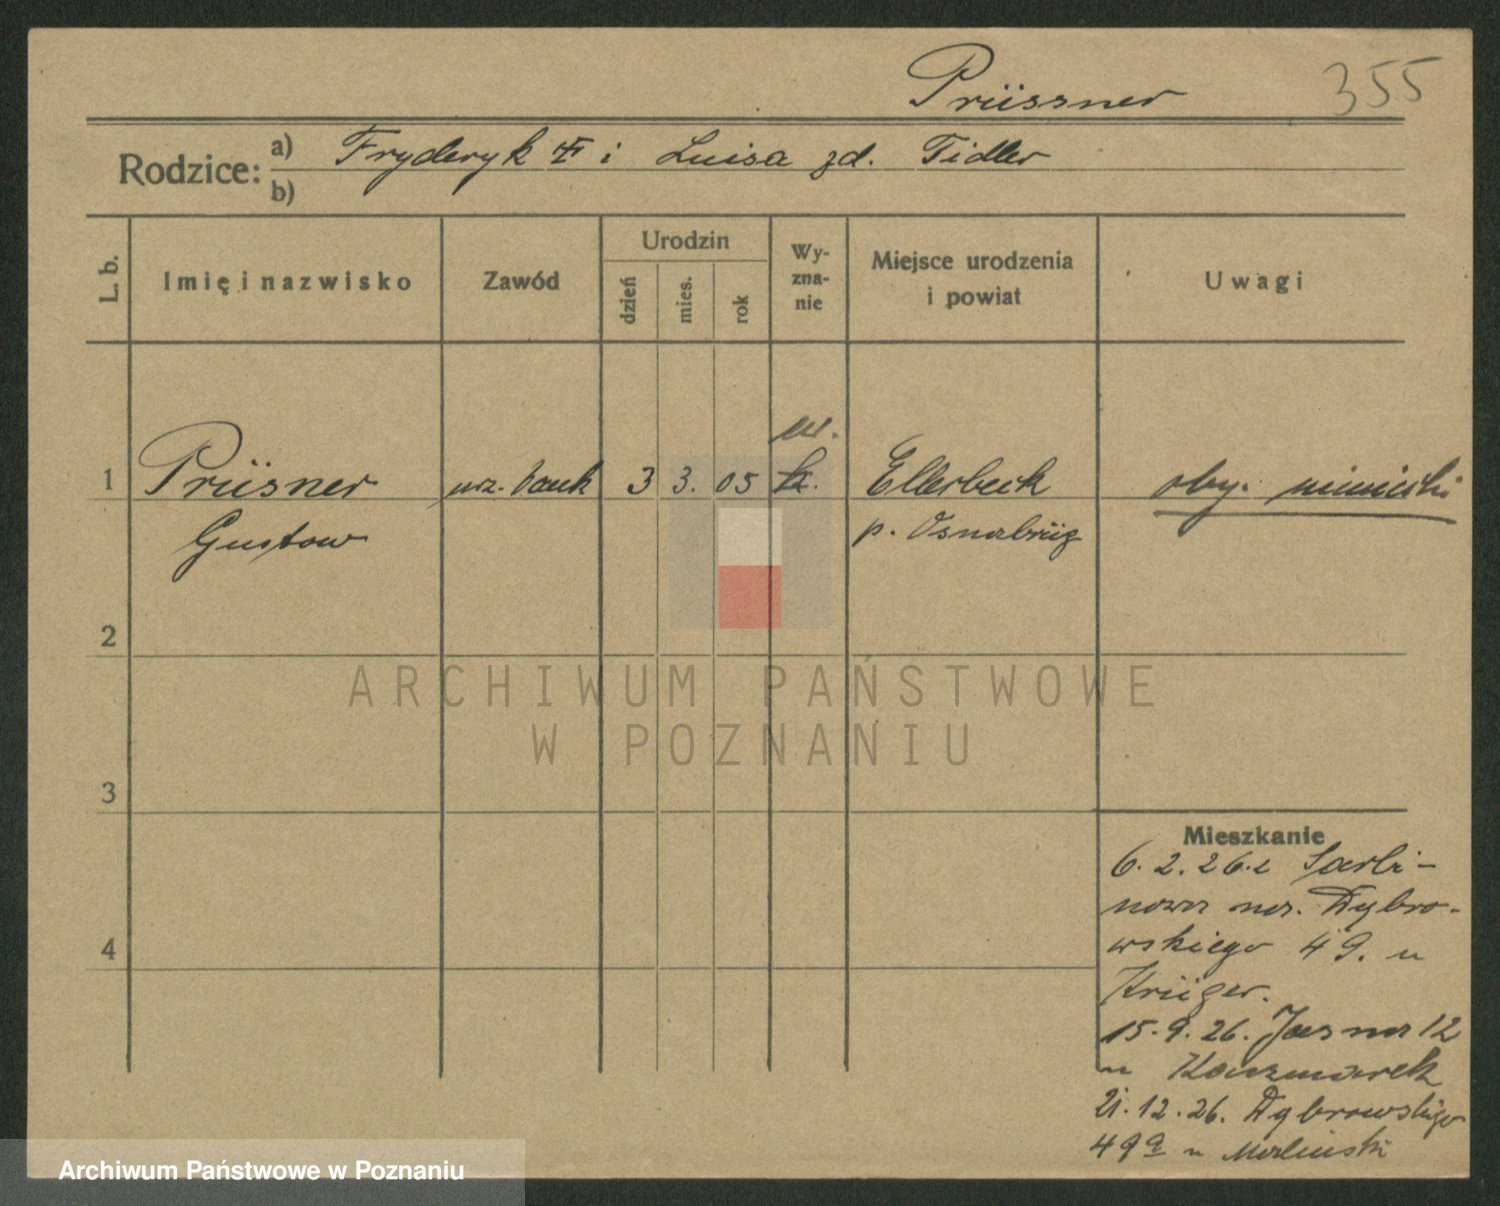 Prüssner 355
Rodzice: a) Fryderyk i Luisa zd. Tidler
b)
L. b. Imię i nazwisko Zawód Urodzin dzień mies. rok Wy-zna-nie Miejsce urodzenia i powiat Uwagi
ew.
1 Prüsner urz. bank 3 3. 05 k. Ellerbeck oby. niemiecki
Gustaw p. Osnabrüg
2
ARCHIWUM PAŃSTWOWE
W POZNANIU
3
Mieszkanie
6. 2. 26. z Sarbi-
nowa na. Dąbro-
4 wskiego 49. u
Krüger.
15. 9. 26. Jasna 12
u Kaczmarek
21. 12. 26. Dąbrowskiego
49a u Maliński
Archiwum Państwowe w Poznaniu